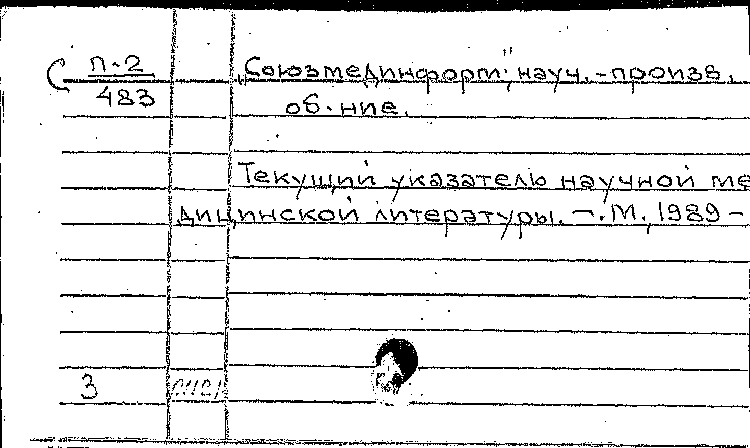 С п.2 „Союзмединформ", науч.-произв.
483 об-ние.
Текущий указатель научной ме
дицинской литературы. –.М., 1989 –
3